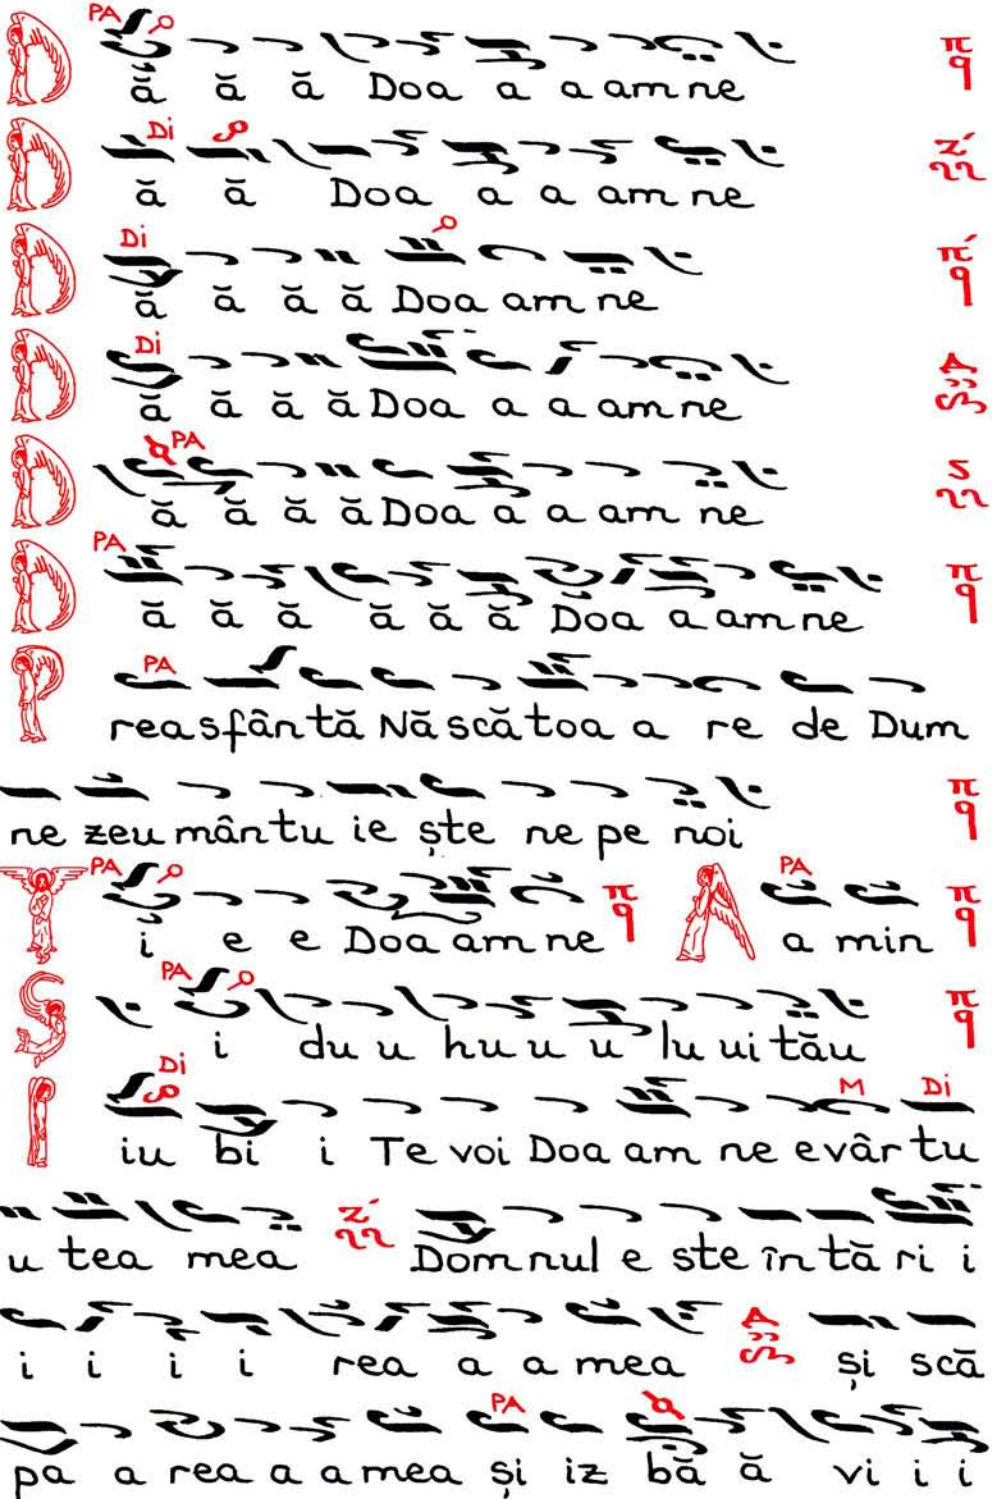 PA
D ă ă ă Doa a a am ne
Di
D ă ă Doa a a am ne
Di
D ă ă ă ă Doa am ne
Di
D ă ă ă ă Doa a a am ne
PA
D ă ă ă ă Doa a a am ne
PA
D ă ă ă ă ă ă Doa a am ne
PA
P rea sfân tă Nă scă toa a re de Dum
ne zeu mân tu ie ște ne pe noi
PA PA
T i e e Doa am ne A a min
PA
S i du u hu u u lu ui tău
Di M Di
I iu bi i Te voi Doa am ne e vâr tu
u tea mea Dom nul e ste în tă ri i
i i i i rea a a mea și scă
PA
pa a rea a a mea și iz bă ă vi i i